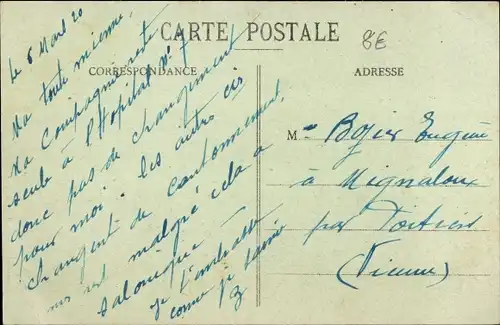 CARTE POSTALE
8E
CORRESPONDANCE
ADRESSE
Le 6 Mars 20
Ma toute mienne,
Ma Compagnie reste
seule à l'Hopital N° 7
donc pas de changement
pour moi. les autres cies
changent de cantonnement,
mais malgré cela à
salonique —
je t'embrasse
comme je t'aime
M Eugène
à Mignaloux
par Poitiers
(Vienne)